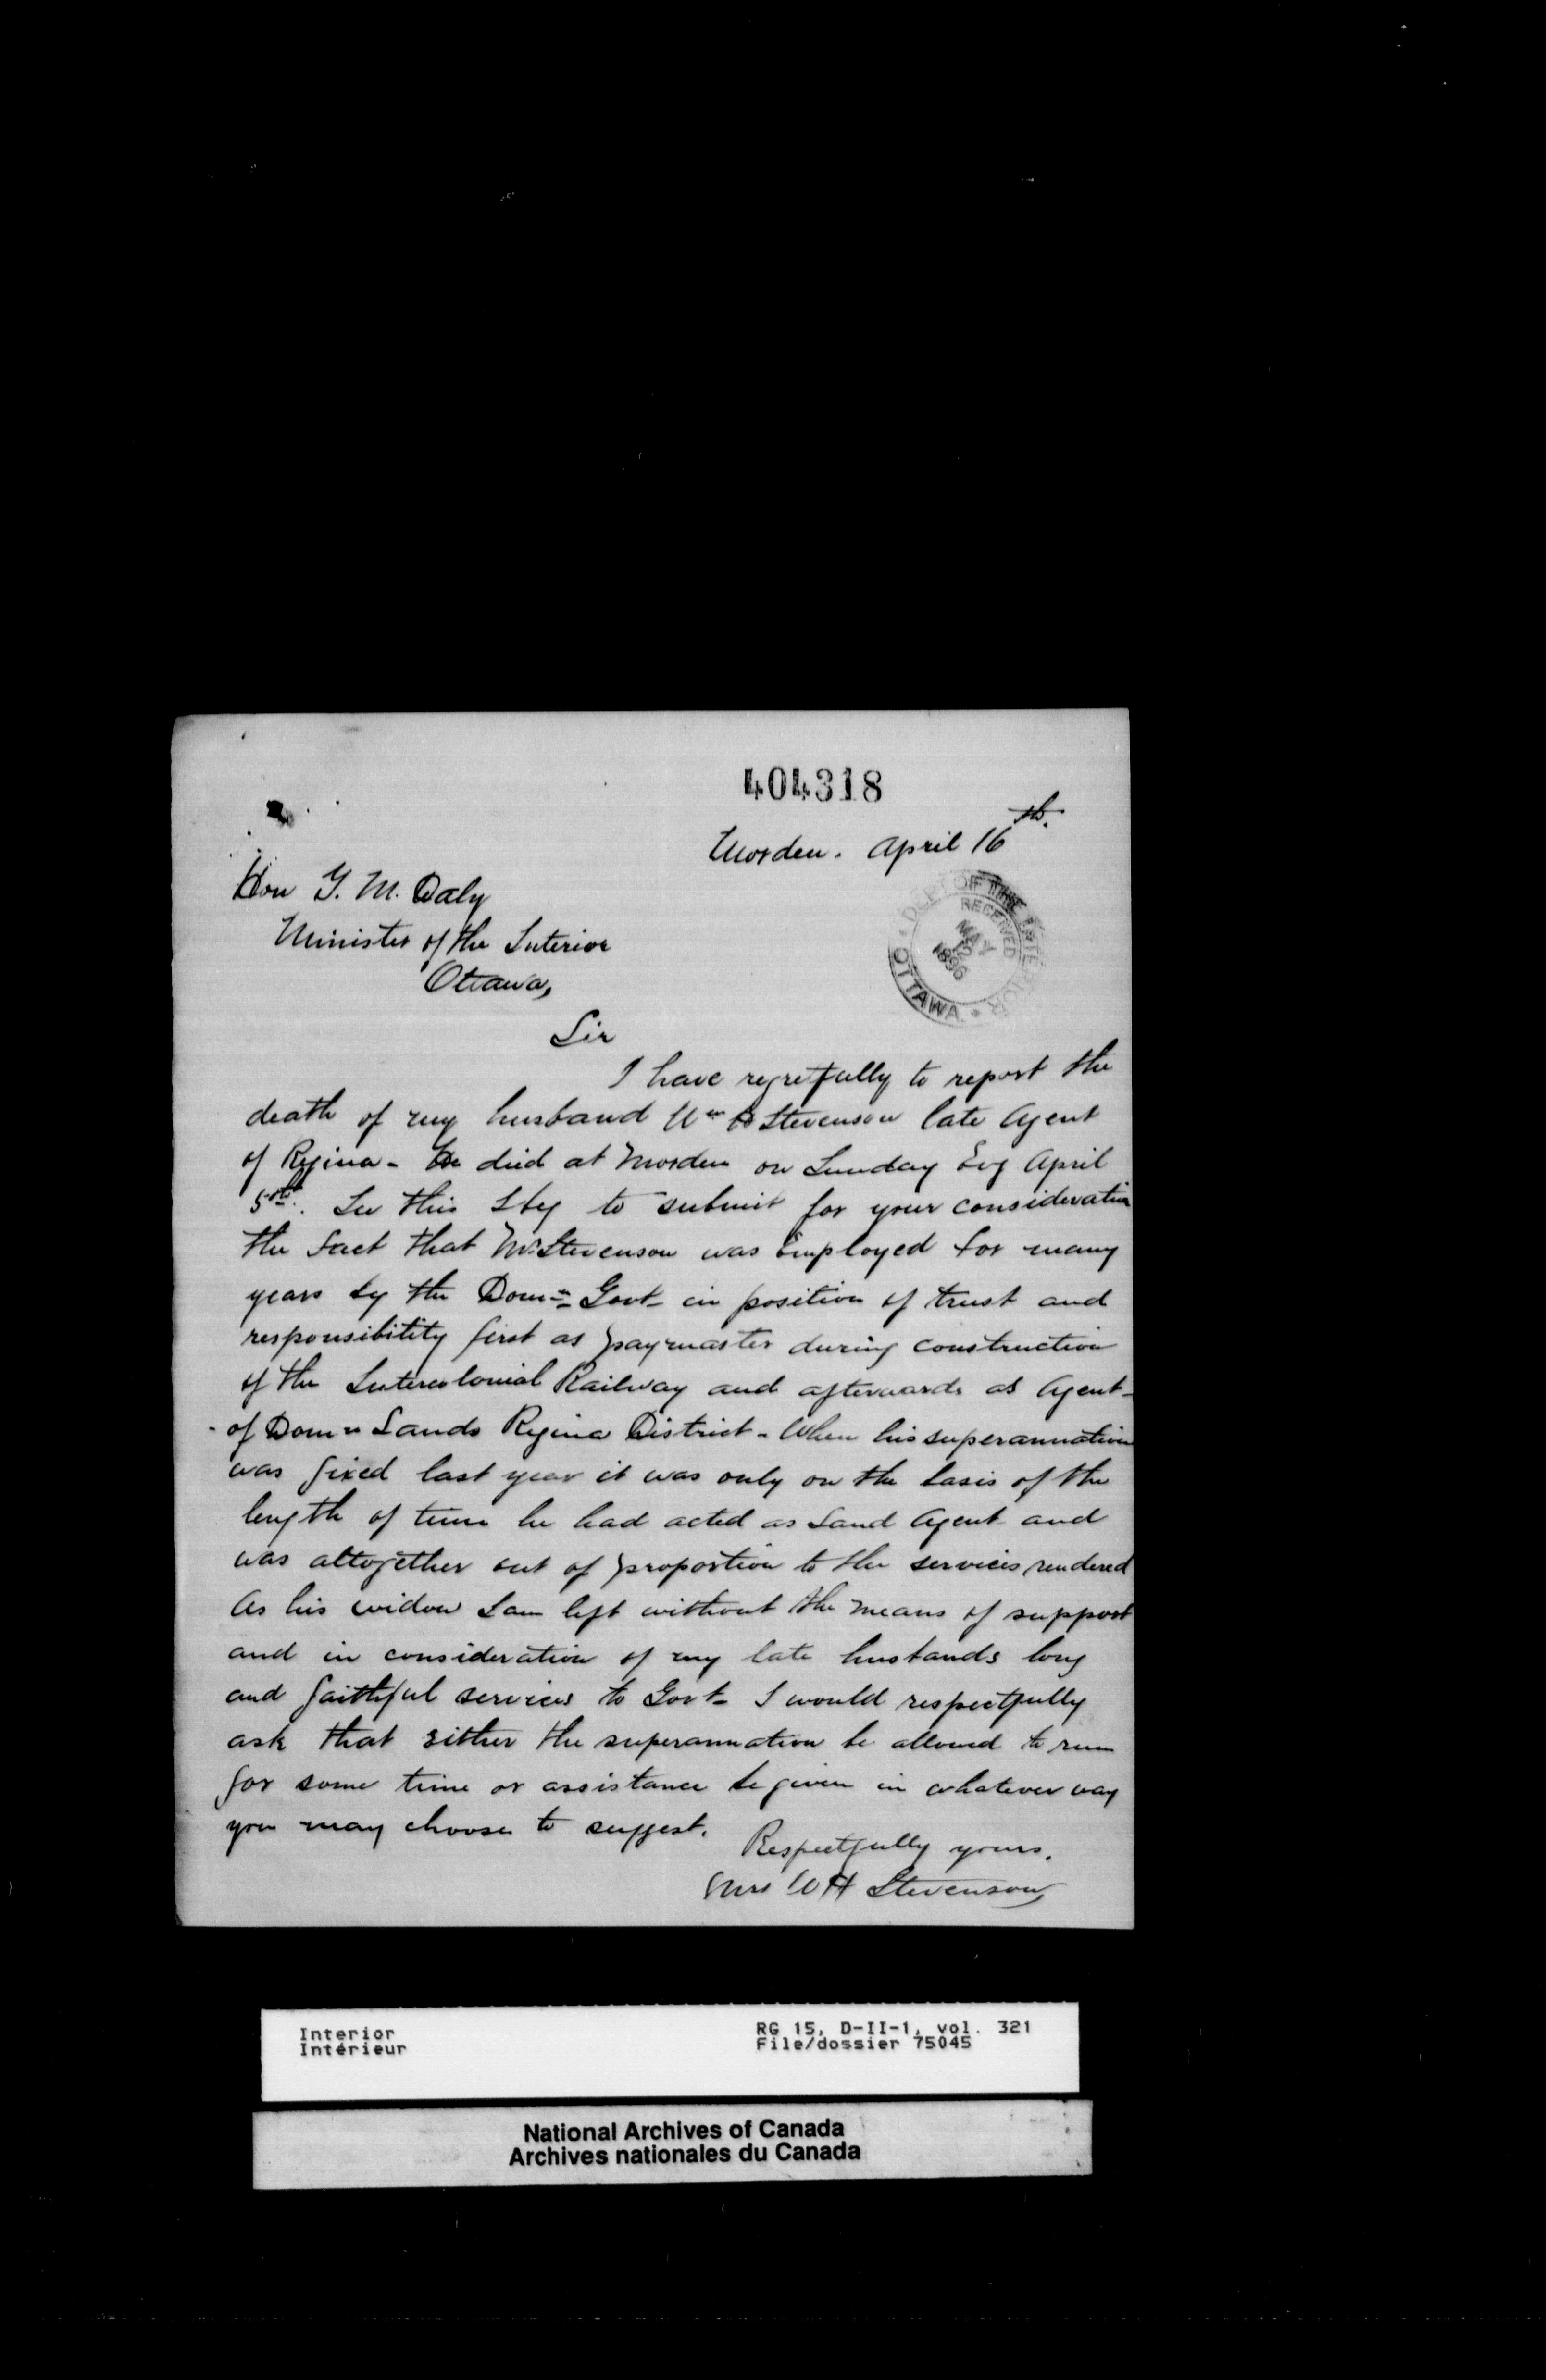 404318
Morden. April 16th.
Hon T. M. Daly
Minister of the Interior
Ottawa,
DEPT OF THE INTERIOR
RECEIVED
MAY
1896
OTTAWA
Sir
I have regretfully to report the
death of my husband Wm H Stevenson late Agent
of Regina - He died at Morden on Sunday Evg April
5th. In this I beg to submit for your consideration
the fact that Mr Stevenson was Employed for many
years by the Domn Govt in position of trust and
responsibility first as paymaster during construction
of the Intercolonial Railway and afterwards as Agent
of Domn Lands Regina District - When his superannuation
was fixed last year it was only on the basis of the
length of time he had acted as Land Agent and
was altogether out of proportion to the services rendered
As his widow I am left without the means of support
and in consideration of my late husbands long
and faithful services to Govt I would respectfully
ask that either the superannuation be allowed to run
for some time or assistance be given in whatever way
you may choose to suggest.
Respectfully yours.
Mrs W H Stevenson
Interior
Intérieur
RG 15, D-II-1, vol. 321
File/dossier 75045
National Archives of Canada
Archives nationales du Canada